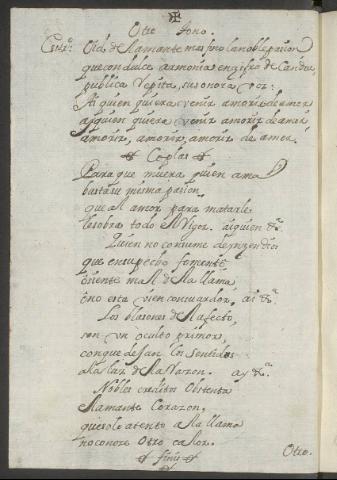 Otro tono.
Oid del amante mas fino la noble pasion
que con dulce armonia en
publica repita, su sonora voz:
Ai quien quiera venir amorir de amor
ai quien quiera venir amorir de amor
amorir, amorir, amorir de amor.
Coplas
Para que muera quien ama
basta su misma pasion
que al amor para matarle
le sobra todo el rigor. ai quien &a.
Quien no consume
que en su pecho
miente mal de la llama
ô no esta bien con su ardor. ai &a.
Los blasones del afecto,
son un oculto primor,
con que dejan los sentidos
a la luz de la razon. ay &a.
Nobles creditos obstenta
el amante Corazon,
que solo atento a la llama
no conoce Otro calor.
finis
Otro.